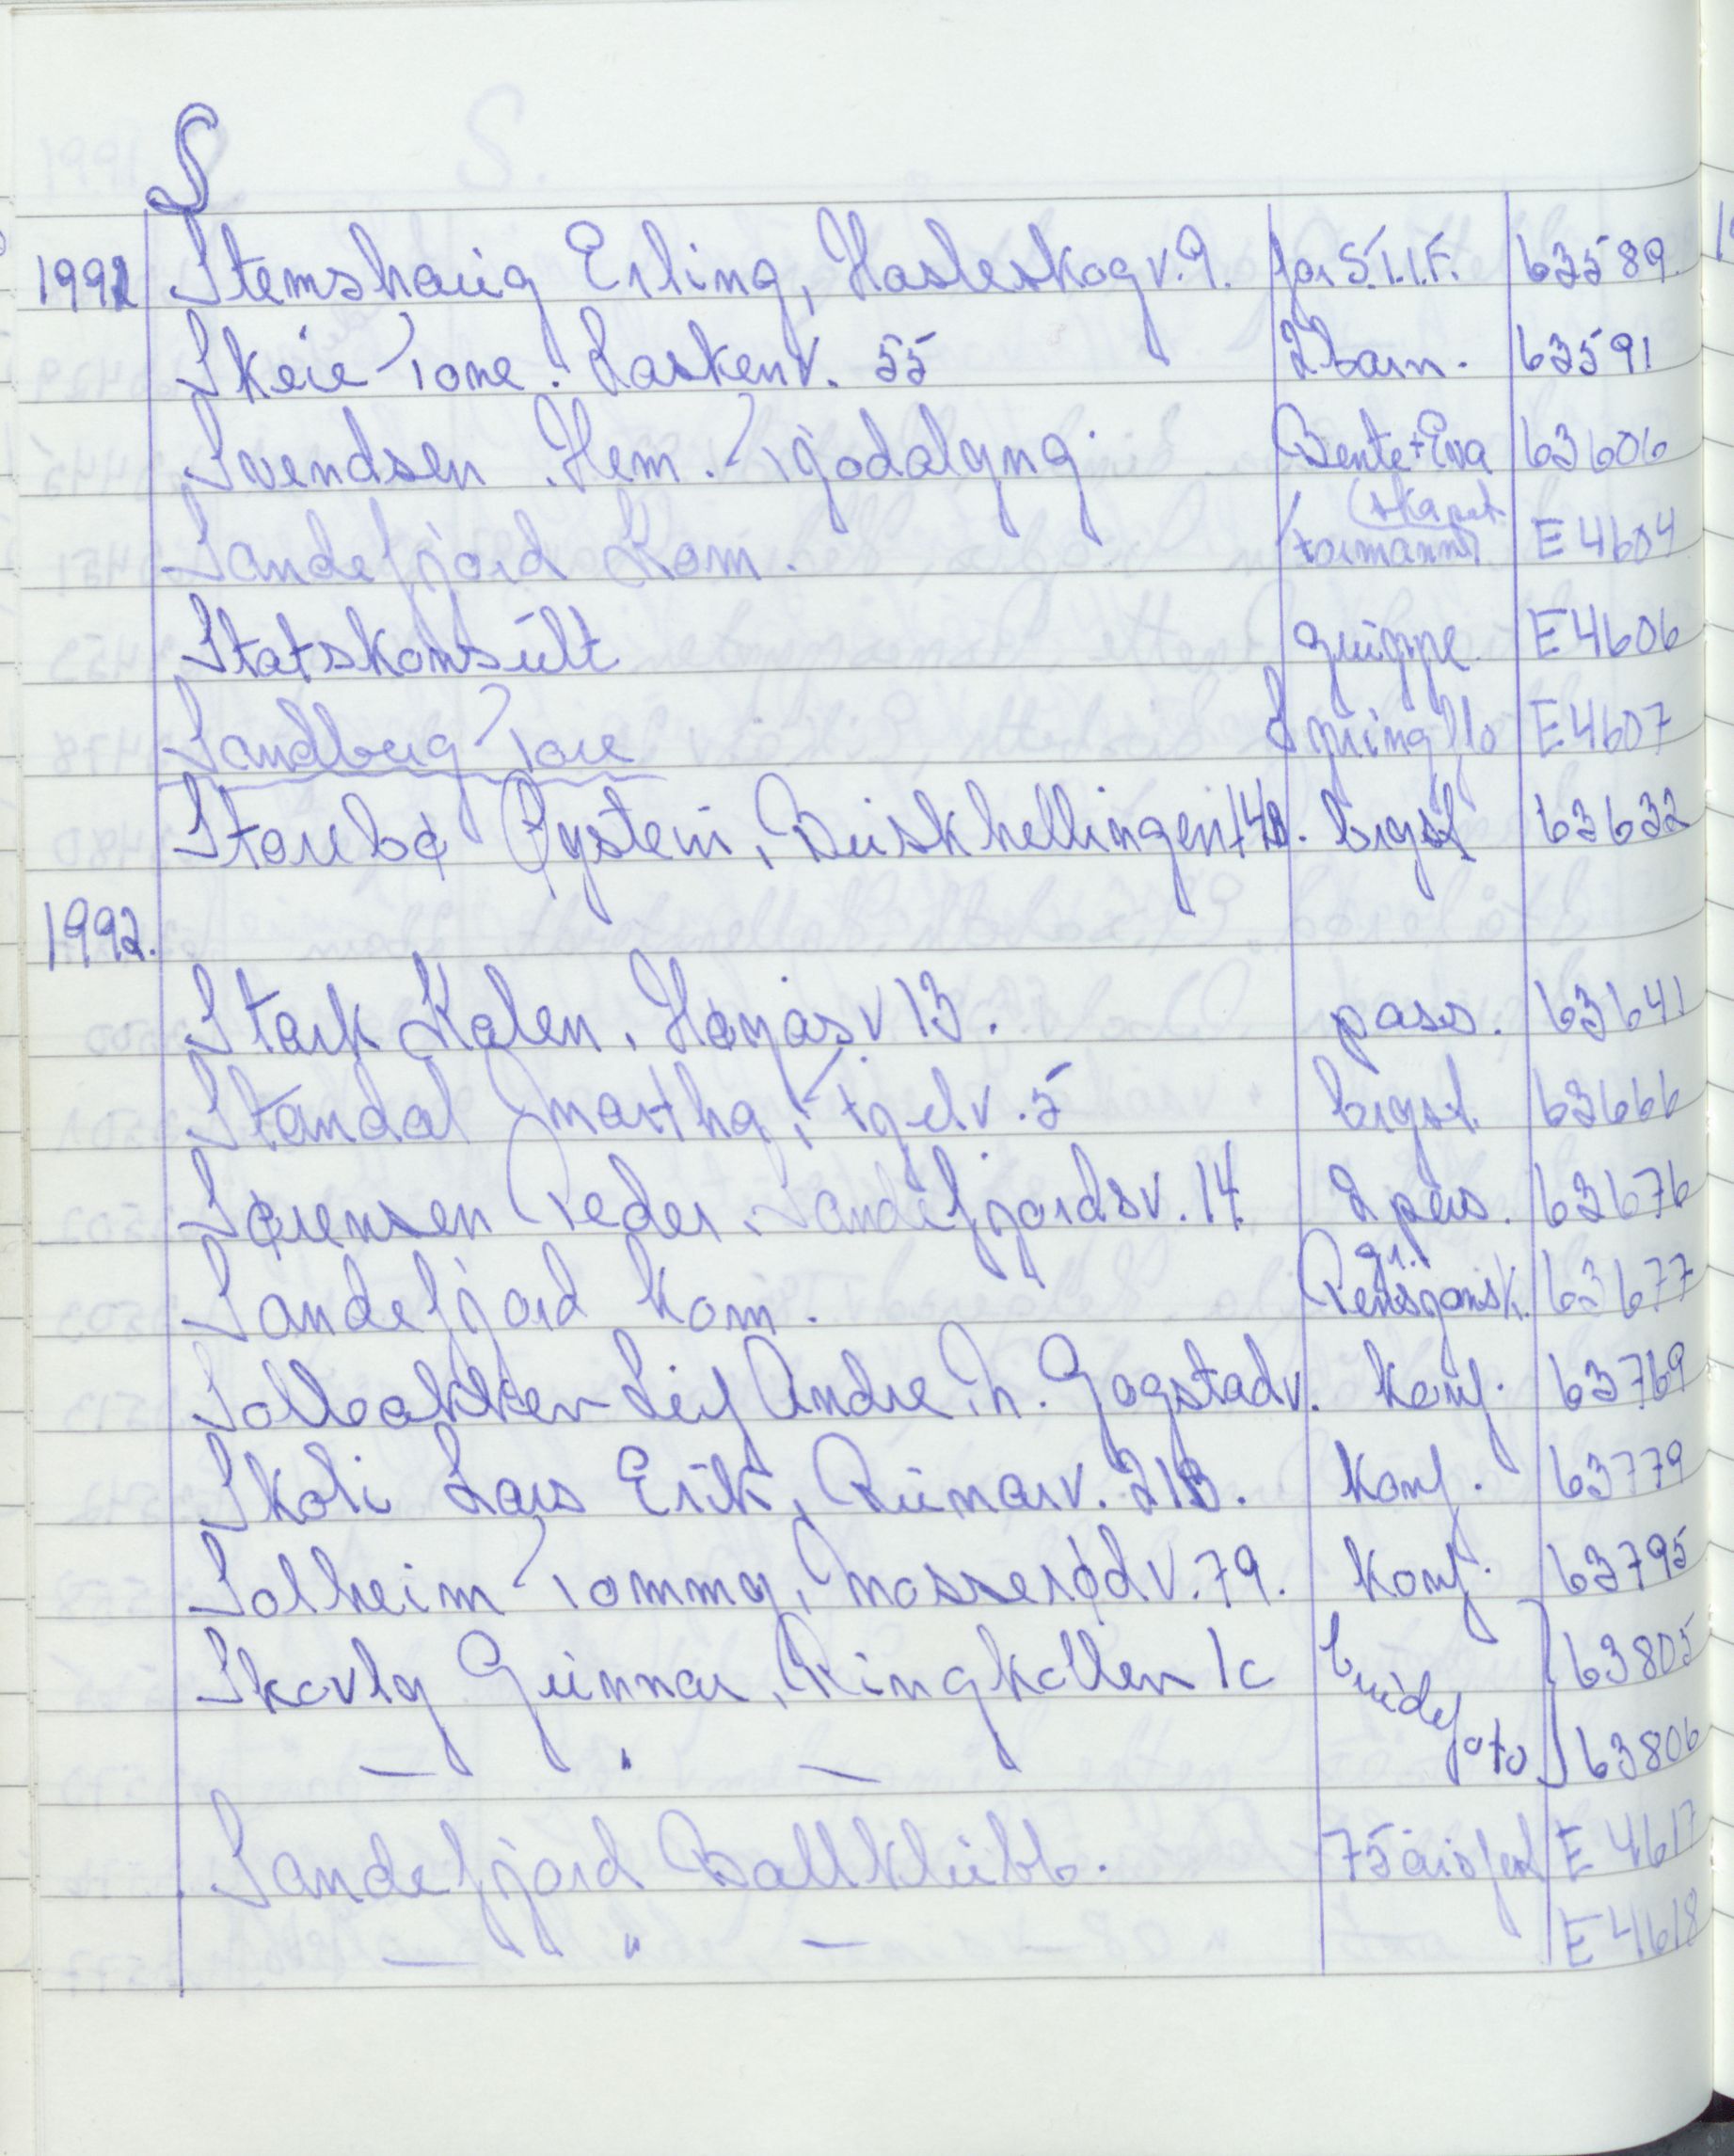 S
1992 Stemshaug Erling, Hasleskogv. 9. for S.I.F. 63589.
Skeie Tone. Laskenv. 55 2 barn. 63591
Svendsen Hem. Tjodalyng. Bente+Eva 63606
Sandefjord Kom. formannskapet E4604
Statskonsult gruppe. E4606
Sandberg Tore E4607
Storebø Øystein, Buskhellingen 14B. bryst 63632
1992.
Stark Kalen, Hanåsv 13. pass. 63641
Standal Martha, Fygelv. 5 bryst. 63666
Sørensen Peder. Sandefjordsv. 14 2 pers. 63676
Sandefjord Kom. gr. Pensjonsk. 63677
Solbakken Leif Andre, N. Gogstadv. Konf. 63769
Skoli Lars Erik, Runarv. 21B. Konf. 63779
Solheim Tommy, Mosserødv. 79. Konf. 63795
Skavly Gunnar, Ringkollen 1c brudefoto 63805
— " — 63806
Sandefjord Ballklubb. 75 års fest E 4617
— " — E 4618